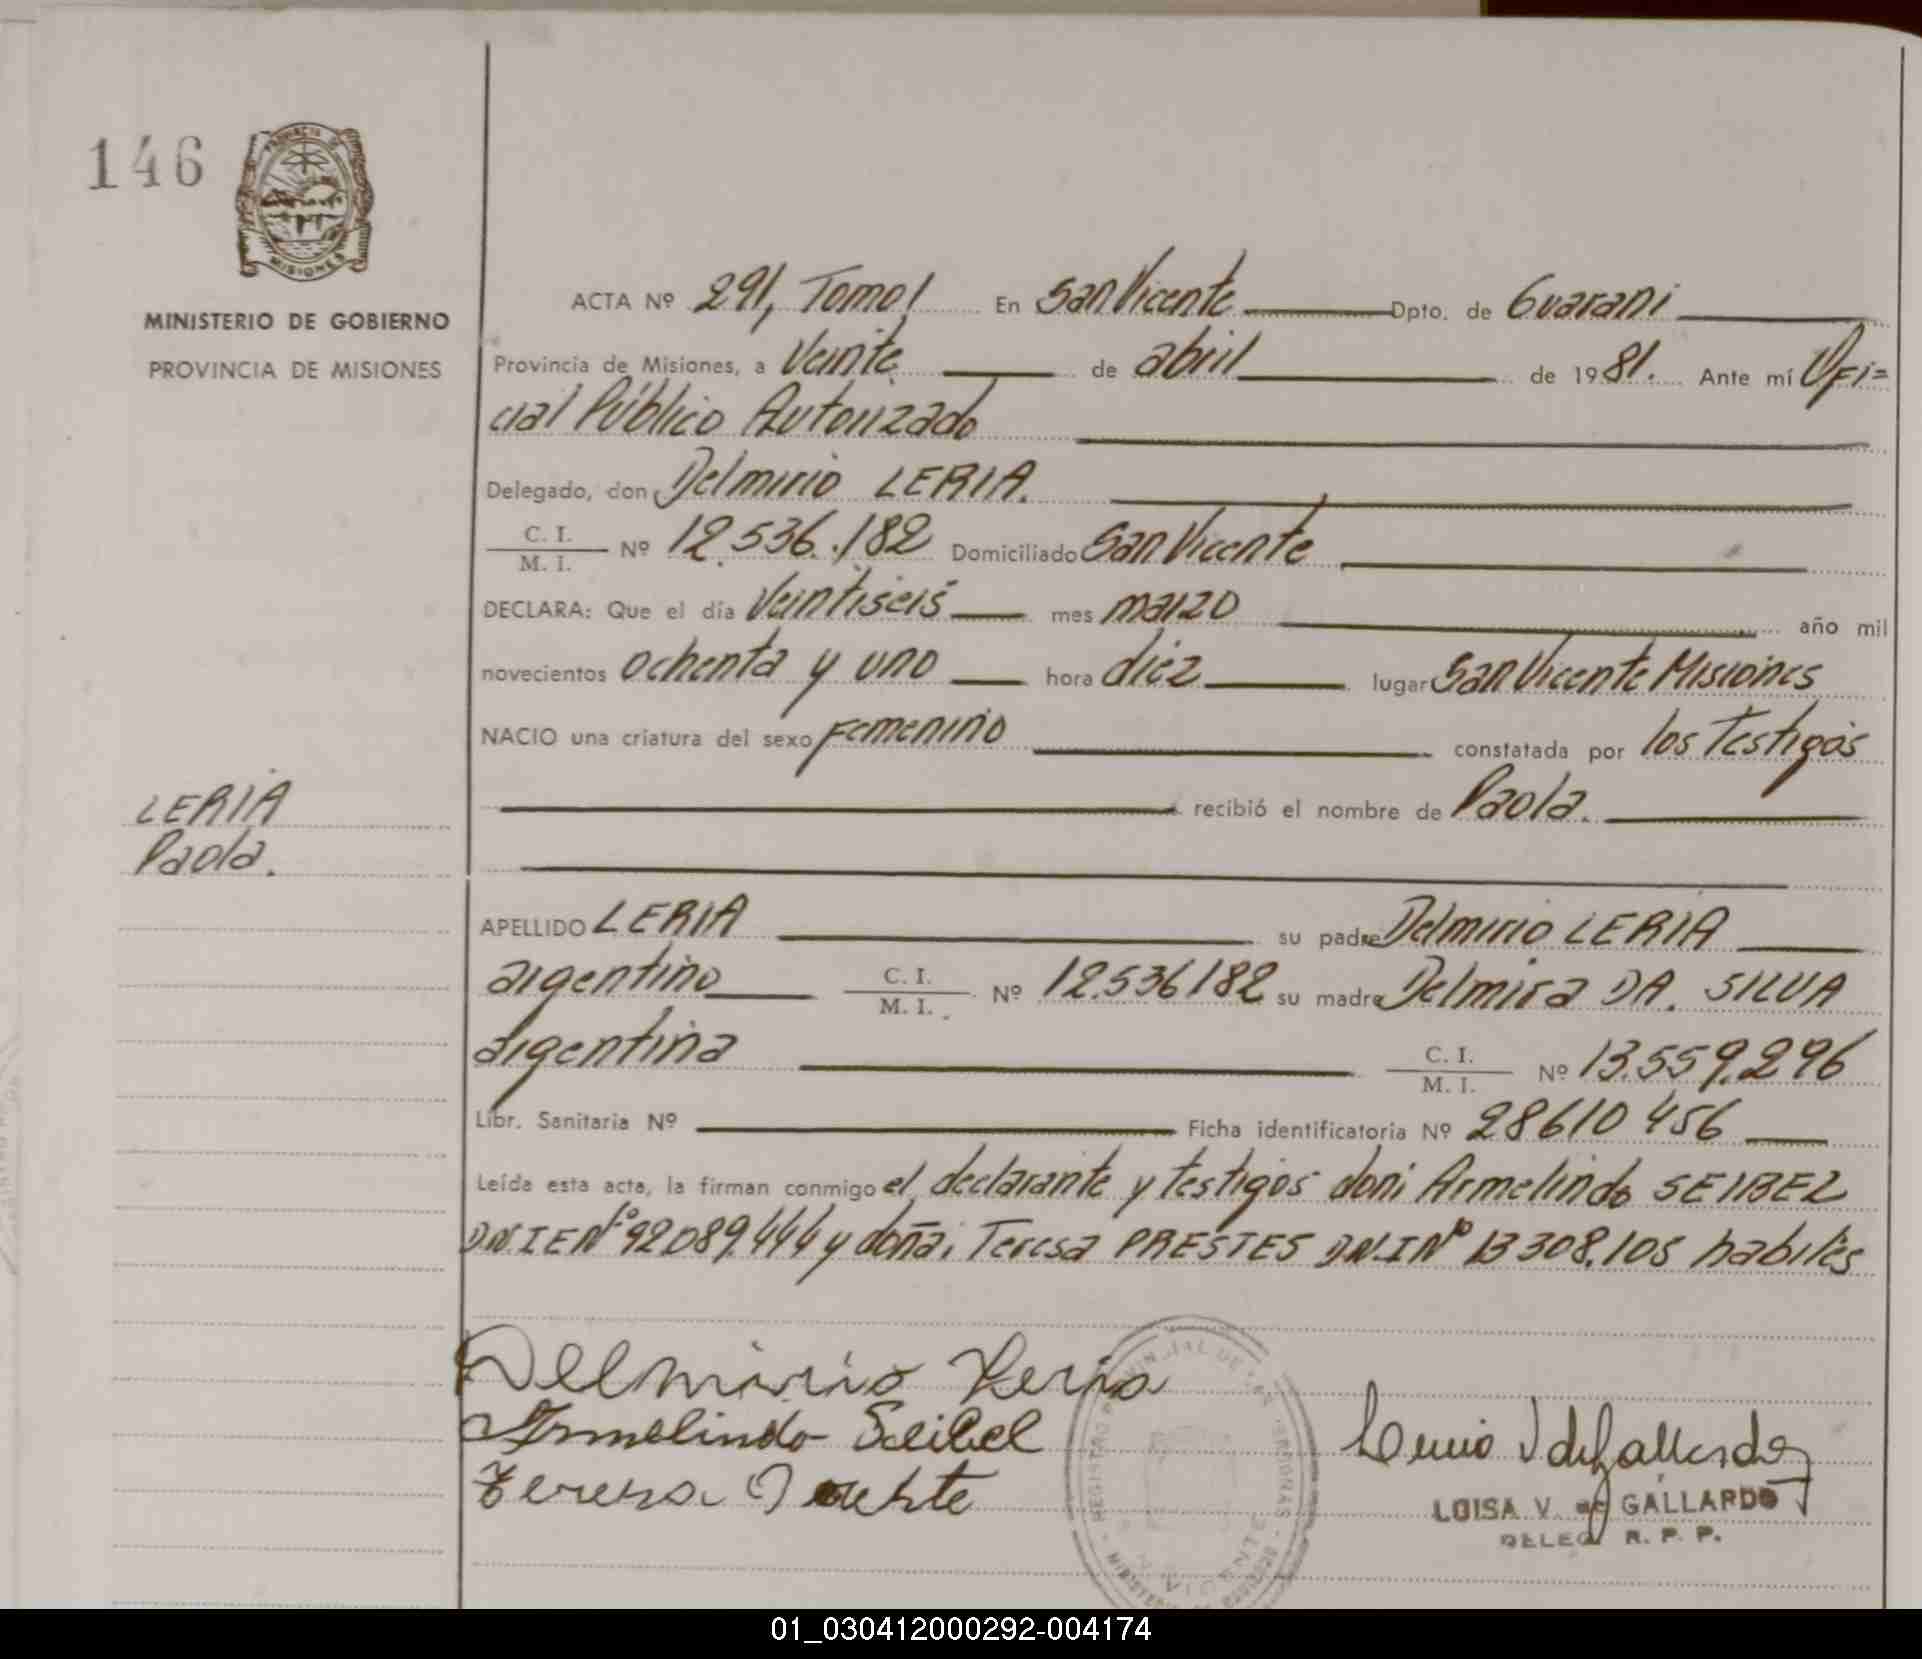 146
PROVINCIA DE
MISIONES
MINISTERIO DE GOBIERNO
PROVINCIA DE MISIONES
ACTA Nº 291, Tomo I En San Vicente Dpto. de Guarani
Provincia de Misiones, a Veinte de abril de 1981. Ante mí Ofi=
cial Público Autorizado
Delegado, don Delmirio LERIA.
C. I.
M. I. Nº 12.536.182 Domiciliado San Vicente
DECLARA: Que el día Veintiseis mes marzo año mil
novecientos ochenta y uno hora diez lugar San Vicente Misiones
NACIO una criatura del sexo Femenino constatada por los Testigos
recibió el nombre de Paola.
LERIA
Paola.
APELLIDO LERIA su padre Delmirio LERIA
argentino C. I.
M. I. Nº 12.536182 su madre Delmira DA. SILVA
argentina C. I.
M. I. Nº 13.559.296
Libr. Sanitaria Nº Ficha identificatoria Nº 28610456
Leída esta acta, la firman conmigo el declarante y testigos don: Armelindo SEIBEL
D.N.I E Nº 92089.444 y doña: Teresa PRESTES D.N.I Nº 13308.105 habiles
Delmirio Leria
Armelindo Seibel
Teresa
REGISTRO PROVINCIAL DE LAS PERSONAS
MINISTERIO DE GOBIERNO
S. VICENTE
de Gallardo
LUISA V. de GALLARDO
DELEG. R. P. P.
01_030412000292-004174